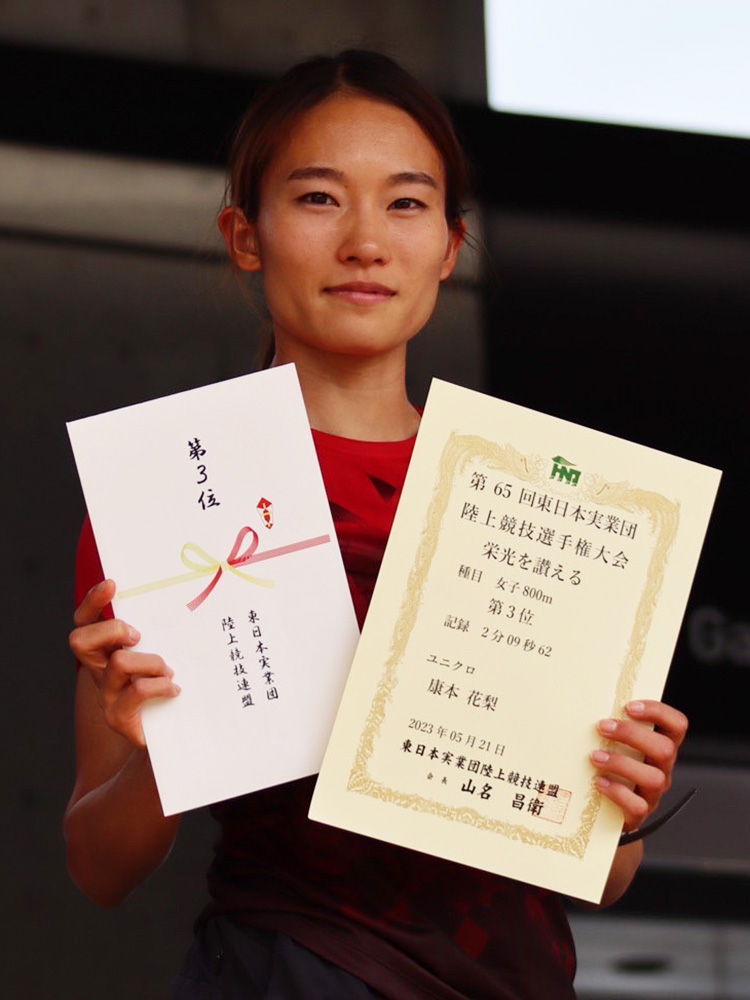 第3位
東日本実業団
陸上競技連盟
HNT
第 65 回東日本実業団
陸上競技選手権大会
栄光を讃える
種目 女子800m
第3位
記録 2分09秒62
ユニクロ
康本 花梨
2023年05月21日
東日本実業団陸上競技連盟
会長 山名 昌衛
Ga